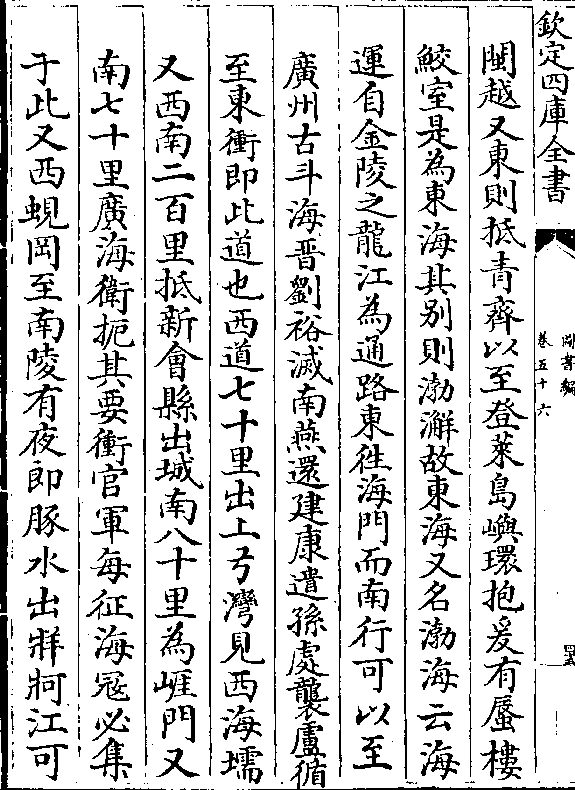 欽定四庫全書
圖書編
卷五十六
閩越又東則抵青齊以至登萊島嶼環抱爰有蜃樓
鮫室是為東海其别則渤澥故東海又名渤海云海
運自金陵之龍江為通路東徃海門而南行可以至
廣州古斗海晉劉裕滅南燕還建康遣孫處襲盧循
至東衝即此道也西道七十里出上弓灣見西海壖
又西南二百里抵新會縣出城南八十里為崕門又
南七十里廣海衛扼其要衝官軍每征海冦必集
于此又西蜆岡至南陵有夜郎豚水出牂牁江可